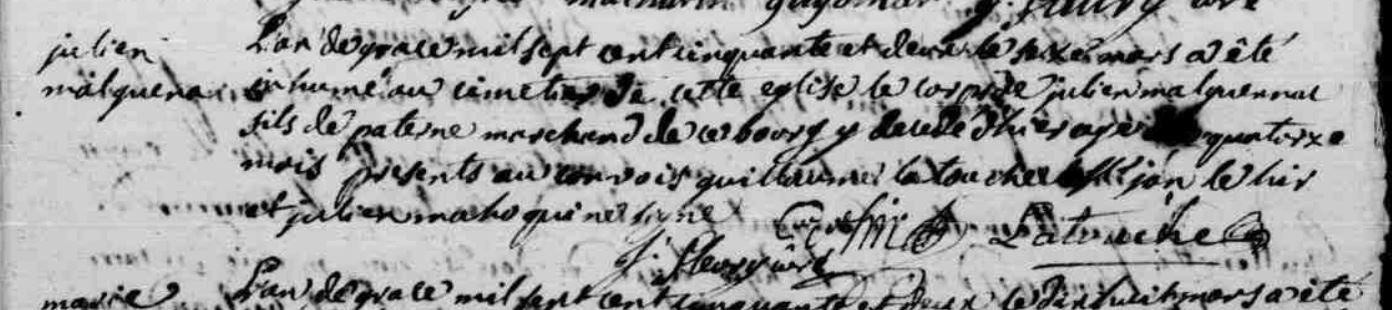 mathurin guyomar
julien
malquena
L'an de grace mil sept cent cinquante et deux le seize mars a été
inhumé au cimetier de cette eglise le corps de julien malquenat
fils de paterne marchand de ce bourg y decedé d'hier agé quatorze
mois presents au convois guillaume latouche jan le hir
et julien maho qui ne signe
Latouche
j. fleury
marie
L'an de grace mil sept cent cinquante et deux le dixhuit mars a été